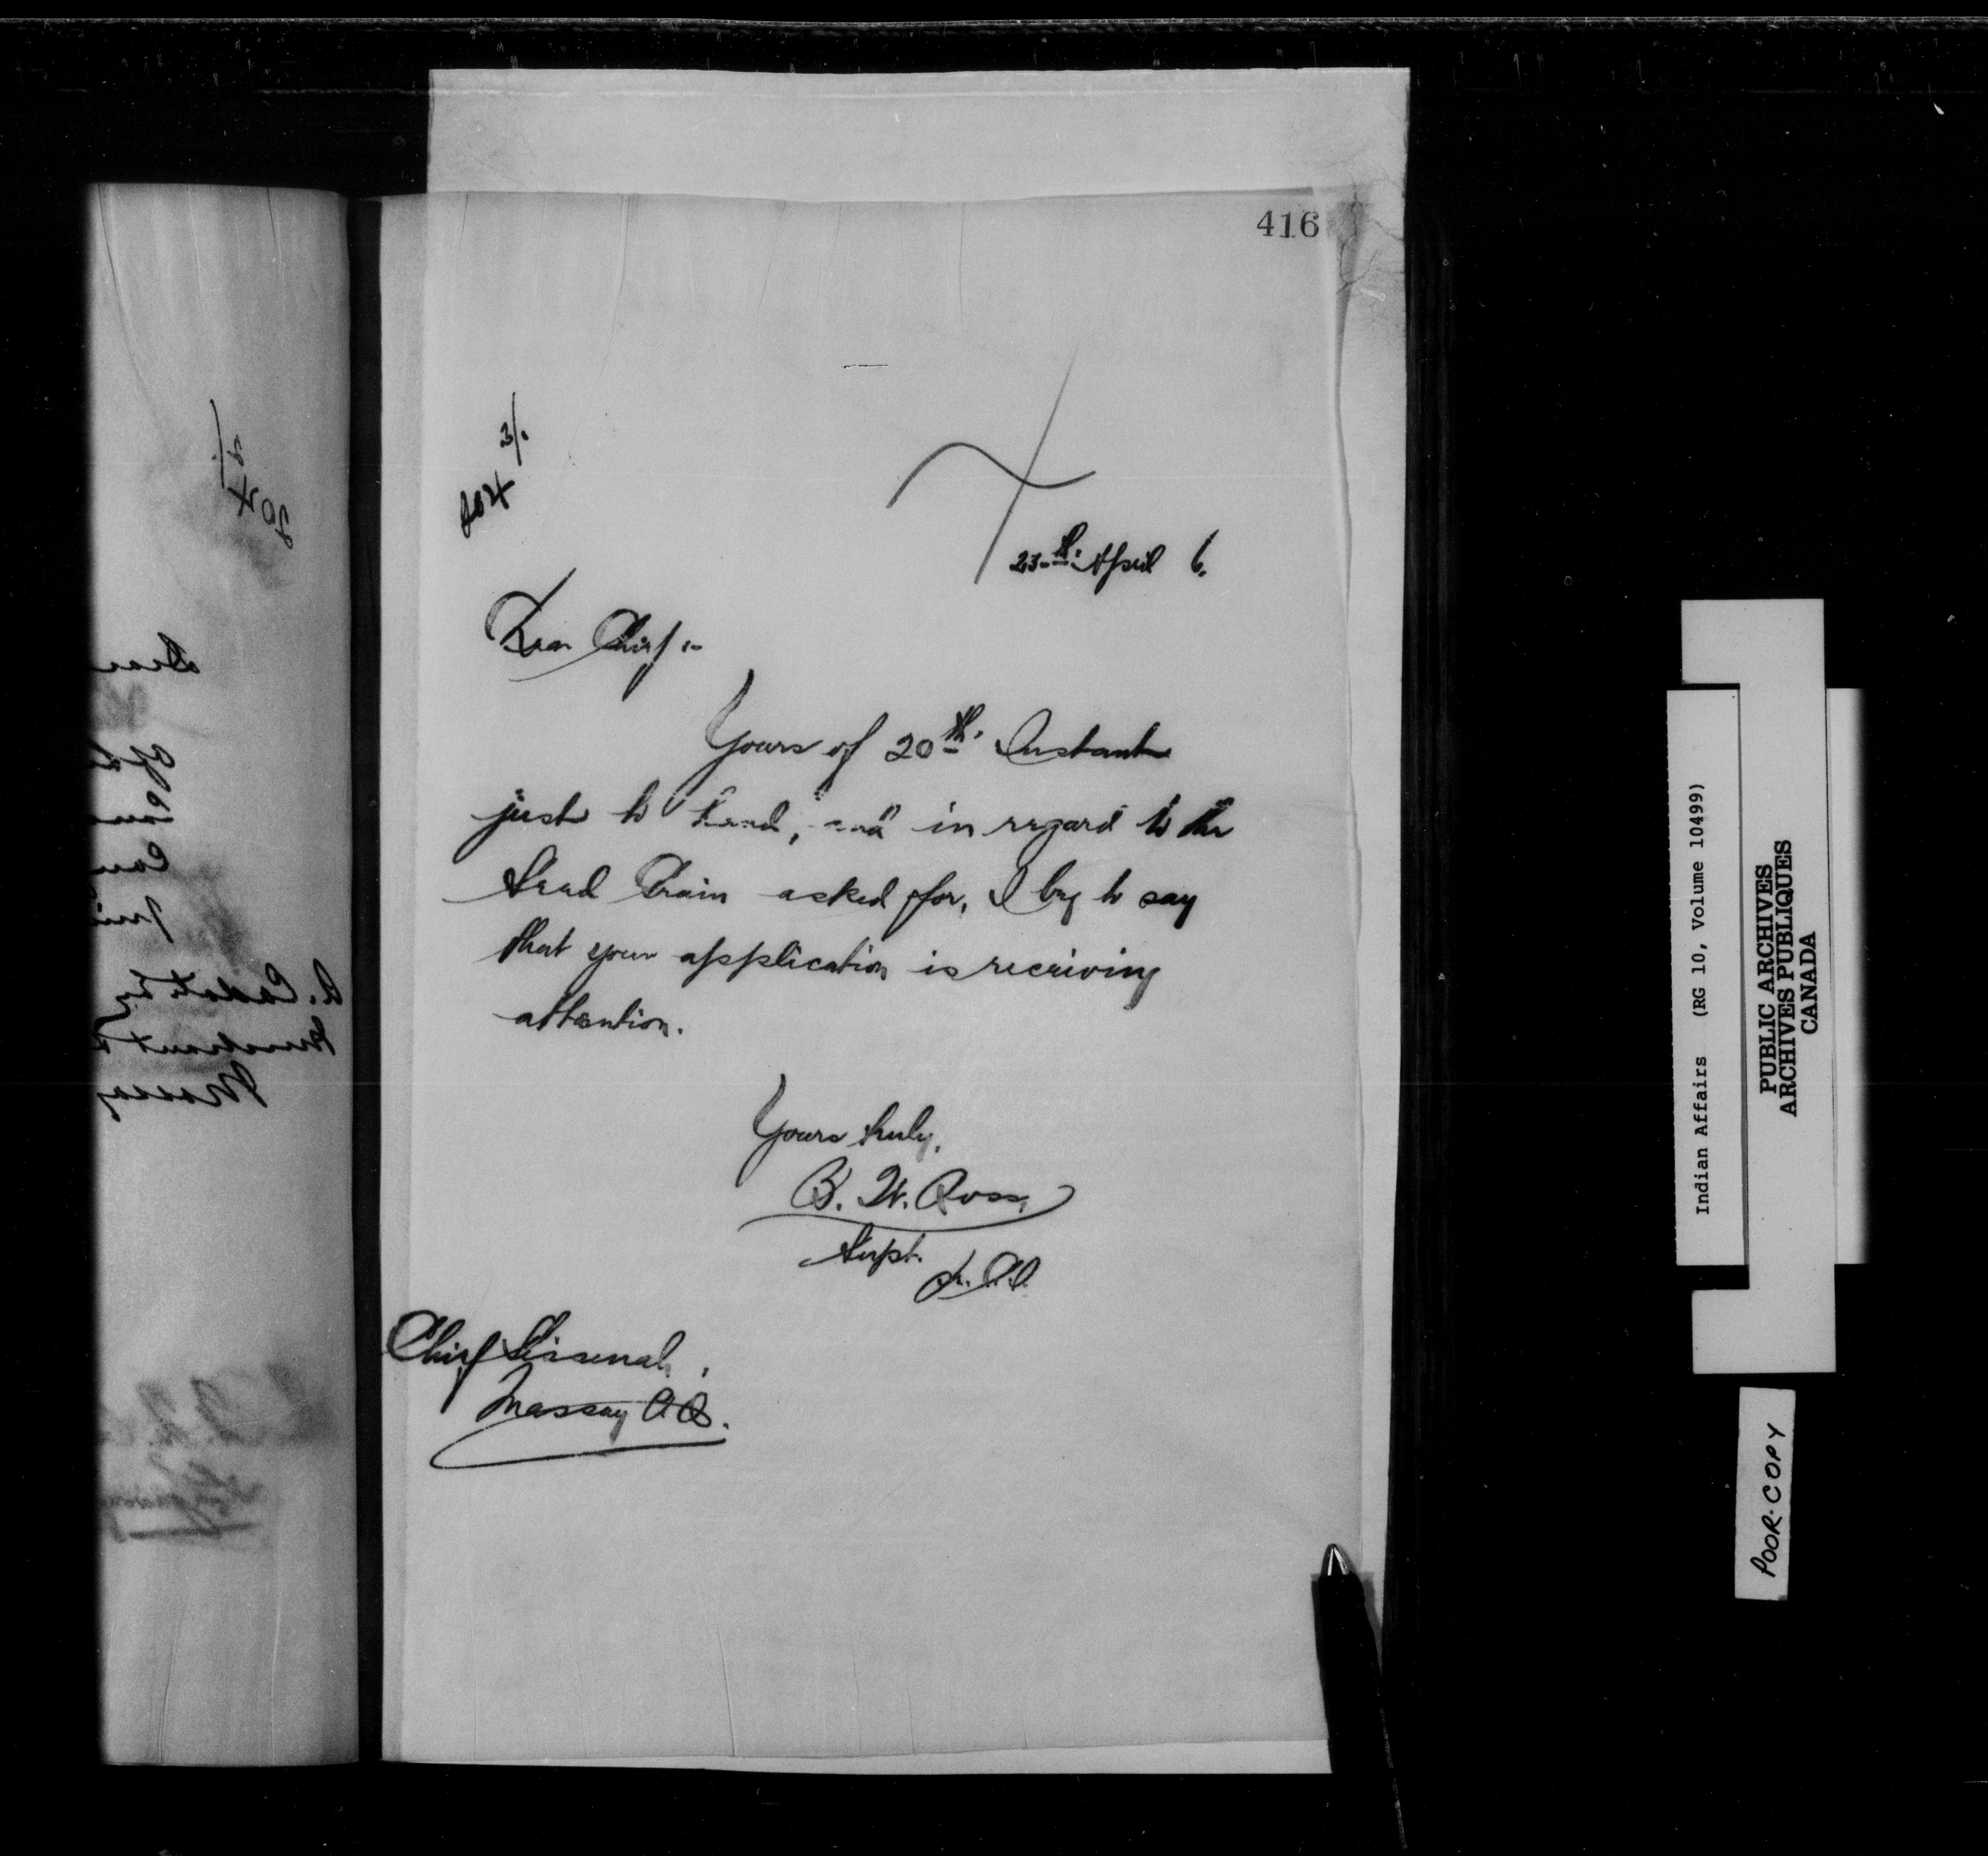 416
3/.
204
23rd. April 6.
Dear Chief:-
Yours of 20th. Instant
just to hand, and in regard to the
Seed Grain asked for, I beg to say
that your application is receiving
attention.
Yours truly,
B. W. Ross,
Supt.
Chief
Massey
Indian Affairs (RG 10, Volume 10499)
PUBLIC ARCHIVES
ARCHIVES PUBLIQUES
CANADA
POOR COPY